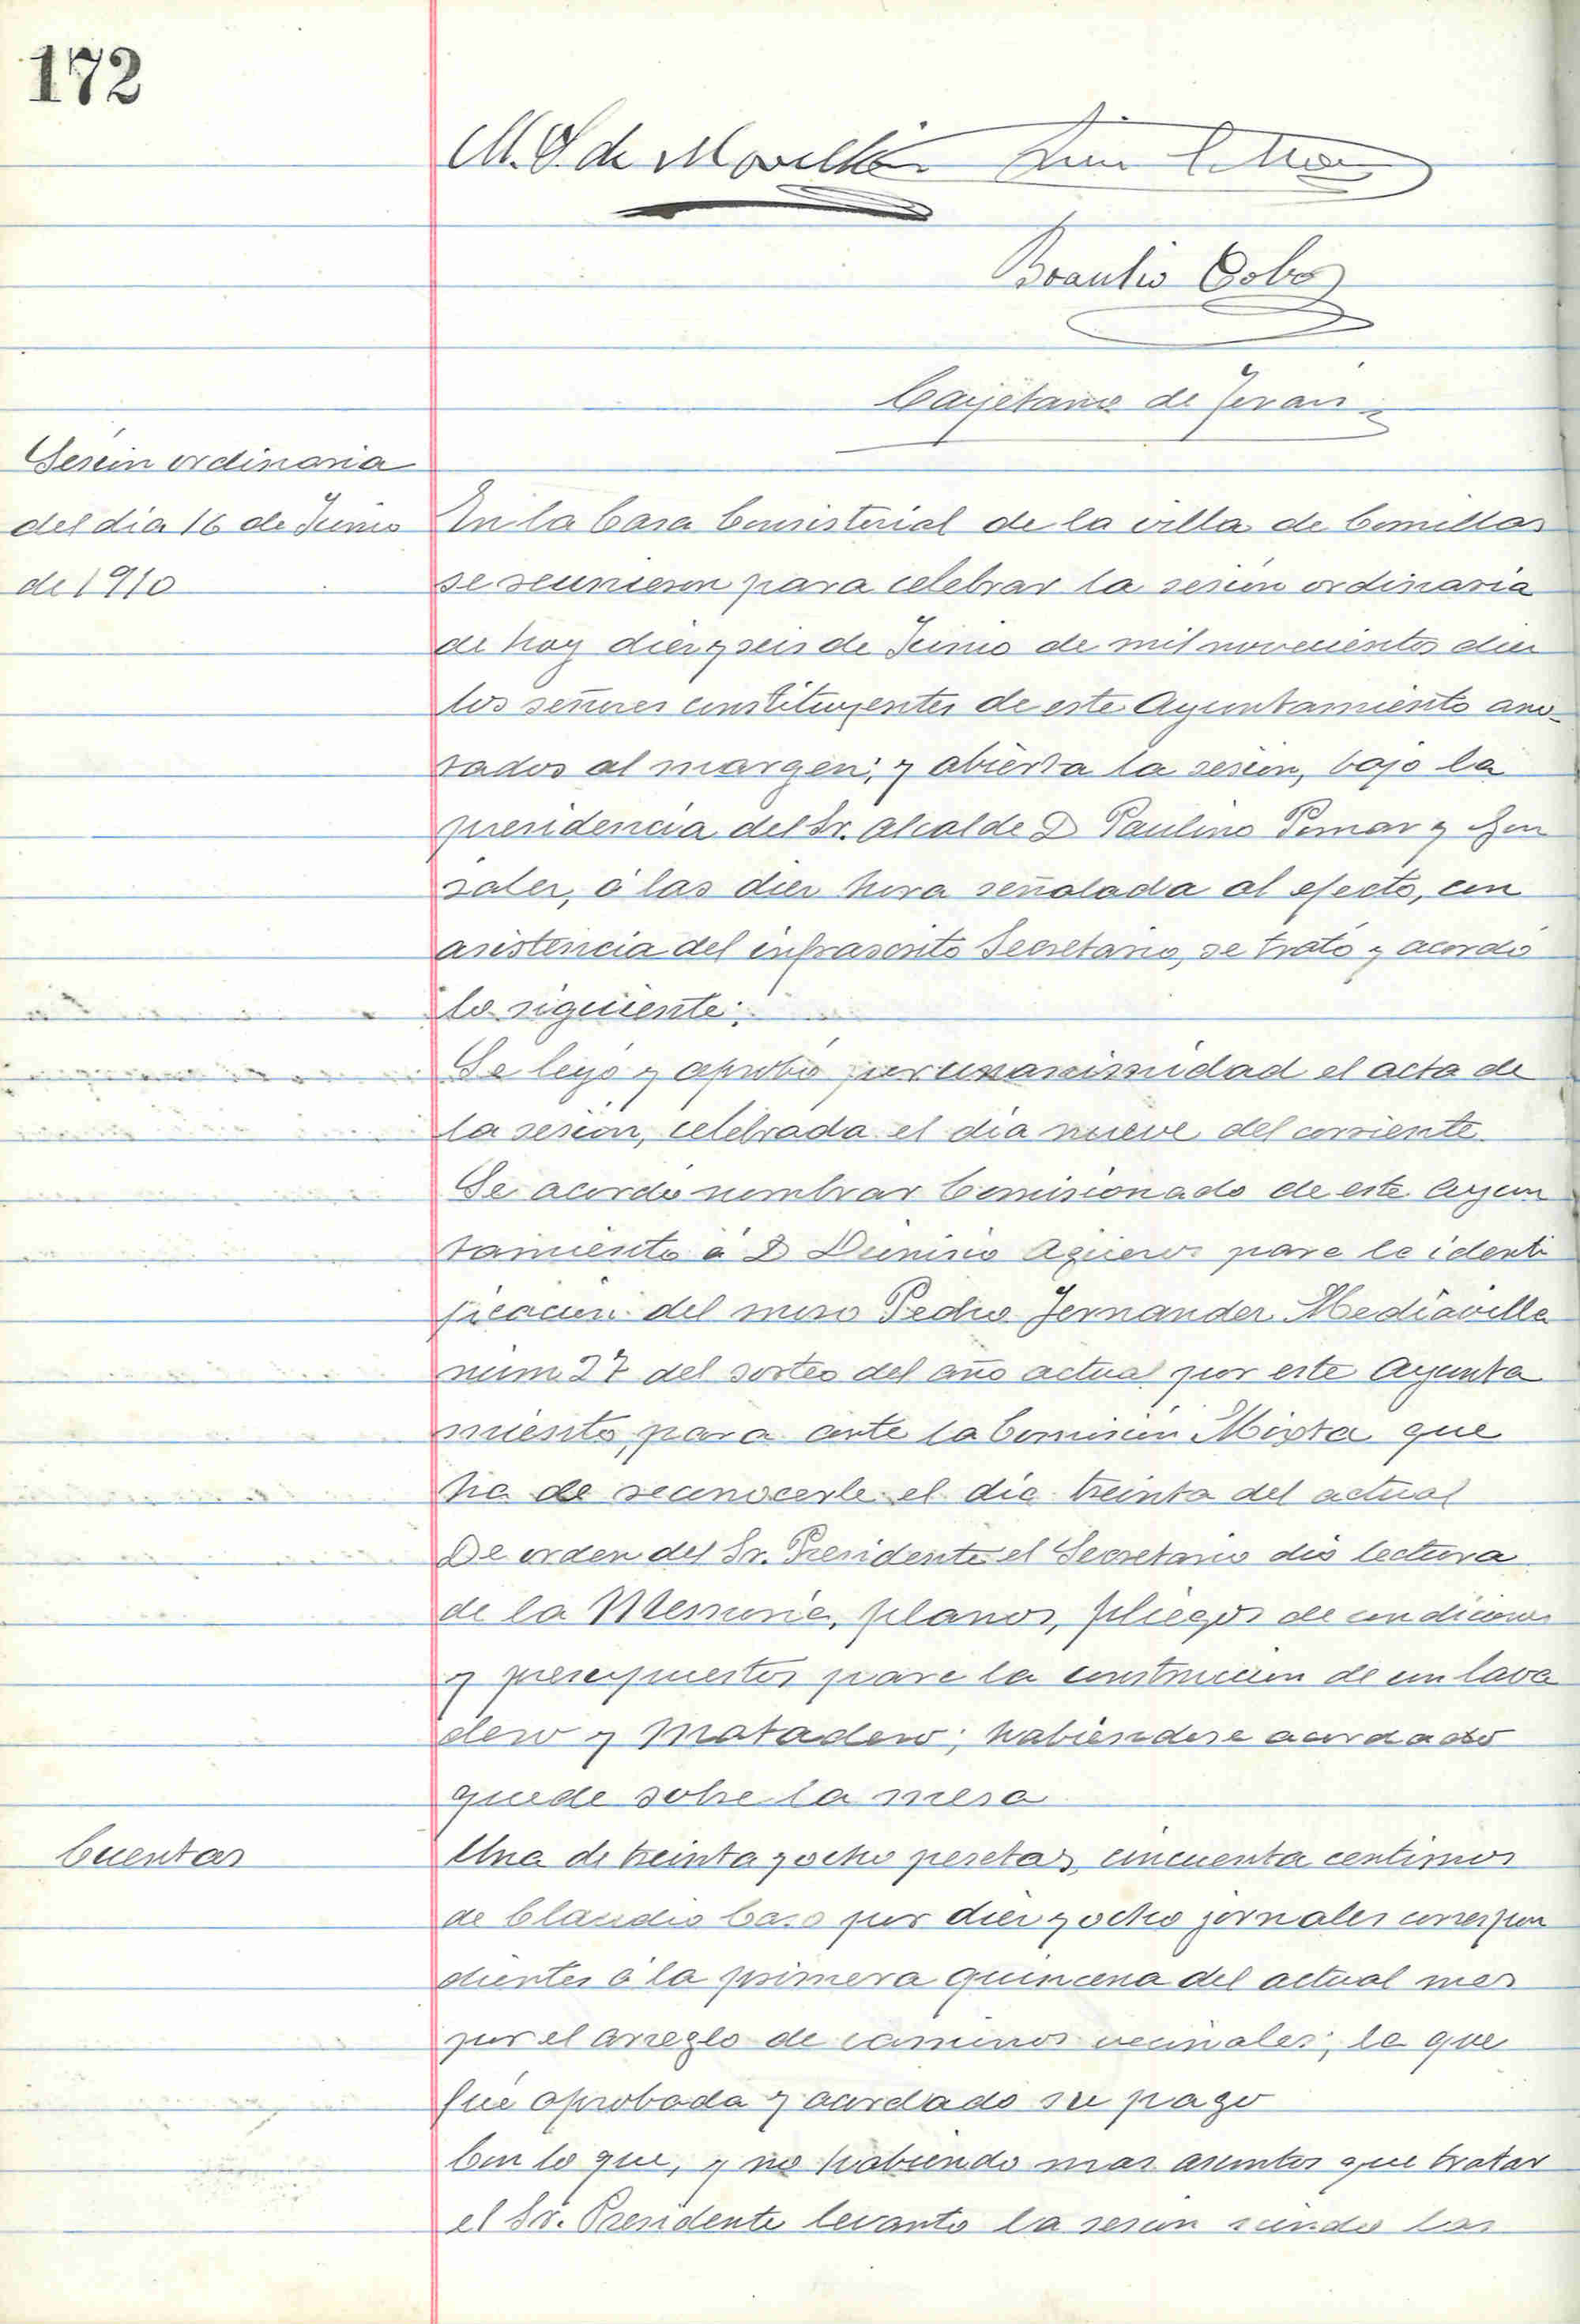 172
M. S. de Movellán
Braulio Cobo
Cayetano de Terán
Sesión ordinaria
del dia 16 de Junio
de 1910
En la Casa Consistorial de la villa de Comillas
se reunieron para celebrar la sesión ordinaria
de hoy diez y seis de Junio de mil novecientos diez
los señores constituyentes de este Ayuntamiento ano-
tados al margen; y abierta la sesión, bajo la
presidencia del Sr. Alcalde D Paulino Pomar y Gon
zalez, á las diez hora señalada al efecto, con
asistencia del infrascrito Secretario, se trató y acordó
lo siguiente:
Se leyó y aprobó por unanimidad el acta de
la sesión, celebrada el dia nueve del corriente
Se acordó nombrar Comisionado de este Ayun
tamiento á D Dionisio Agüeros para la identi
ficación del mozo Pedro Fernandez Mediavilla
núm 27 del sorteo del año actual por este Ayunta
miento, para ante la Comisión Mixta que
ha de reconocerle el dia treinta del actual
De orden del Sr. Presidente el Secretario dió lectura
de la Memoria, planos, pliegos de condiciones
y presupuestos para la construcción de un lava
dero y Matadero; habiendose acordado
quede sobre la mesa
Cuentas
Una de treinta y ocho pesetas, cincuenta centimos
de Claudio Caso por diez y ocho jornales correspon
dientes á la primera quincena del actual mes
por el arreglo de caminos vecinales; la que
fué aprobada y acordado su pago
Con lo que, y no habiendo mas asuntos que tratar
el Sr. Presidente levantó la sesión siendo las